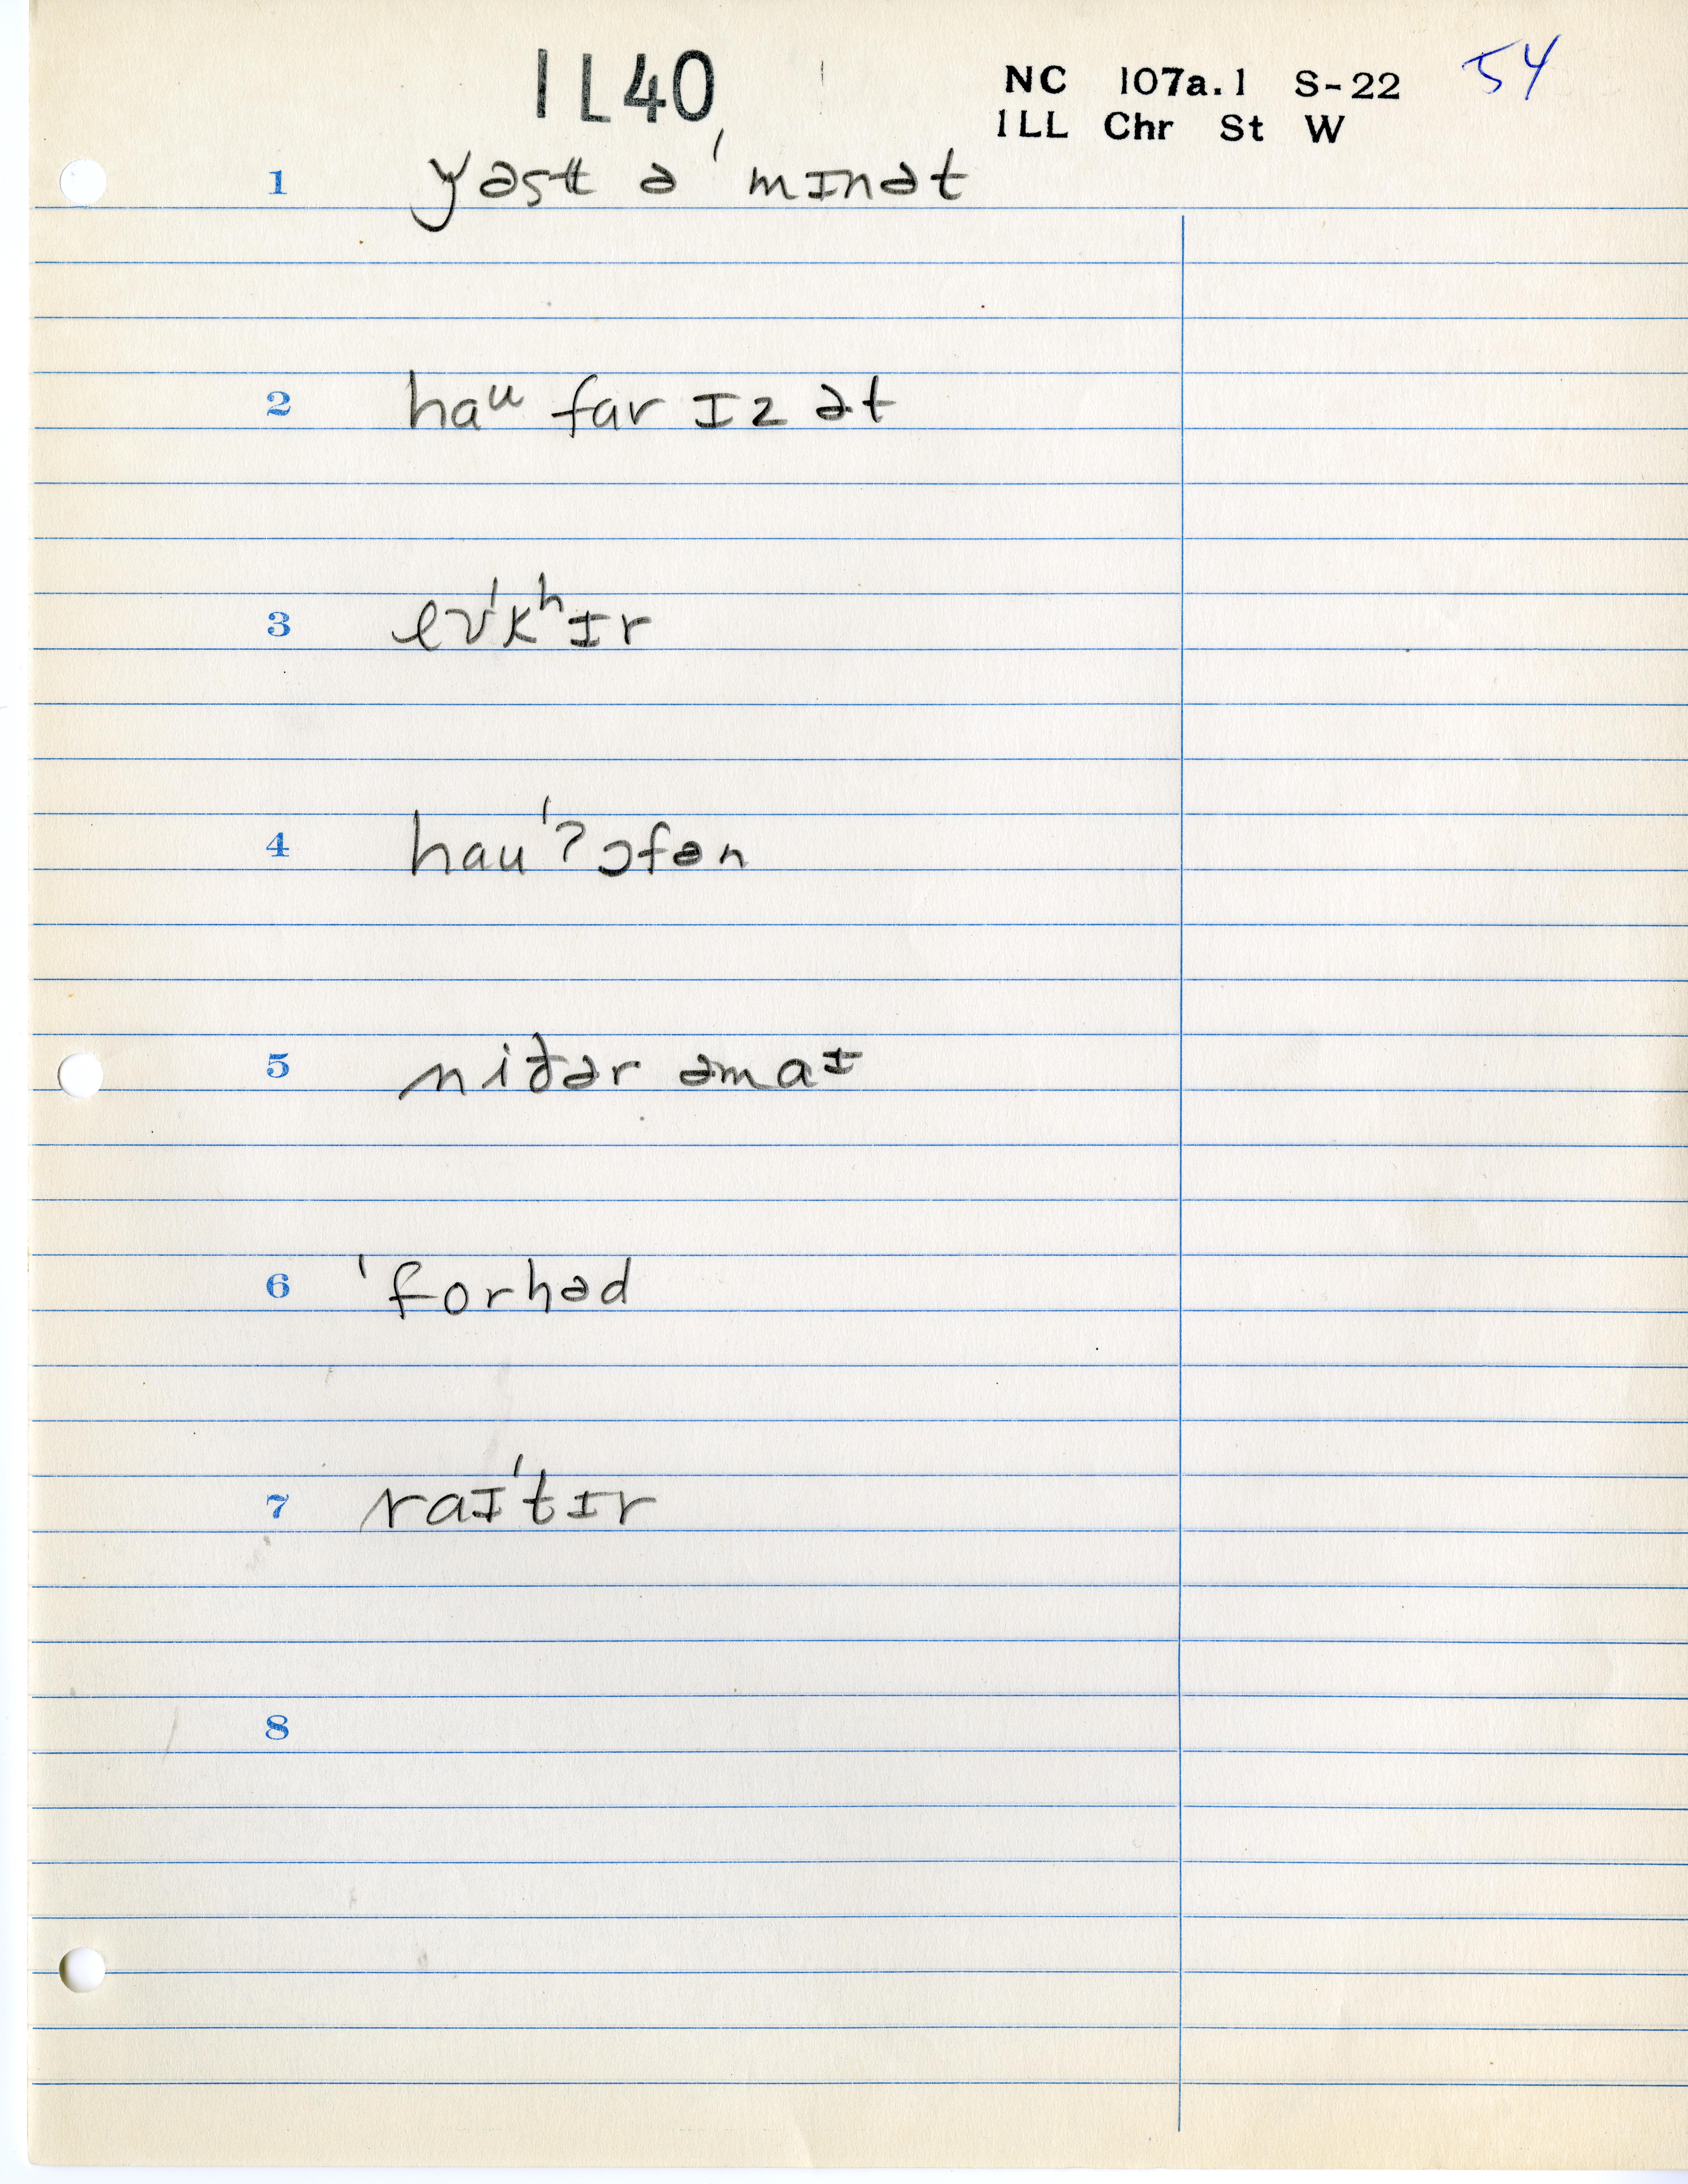 1L40
NC 107a.1 S-22 54
ILL Chr St W
1 yəst ə ˈmɪnət
2 haᵘ far ɪz ət
3 evˈkʰɪr
4 hauˈʔɔfən
5 niðər əmaᶦ
6 ˈforhəd
7 raɪˈtɪr
8